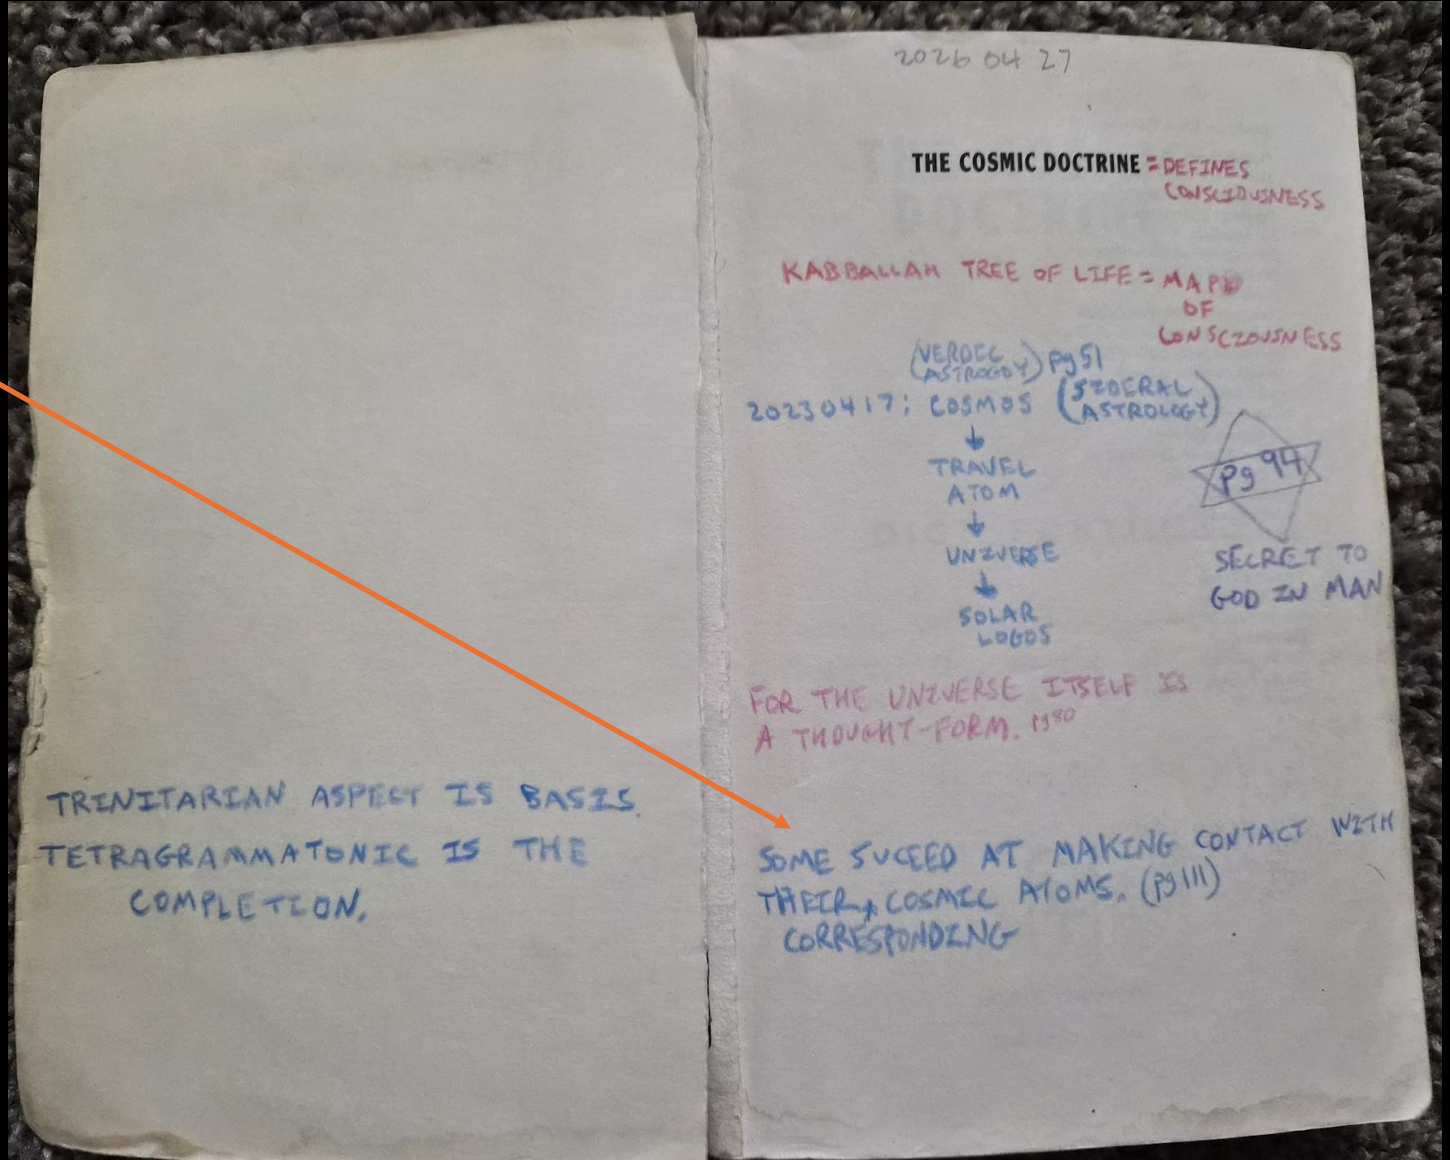 TRINITARIAN ASPECT IS BASIS.
TETRAGRAMMATONIC IS THE
COMPLETION.
2026 04 27
THE COSMIC DOCTRINE = DEFINES
CONSCIOUSNESS
KABBALLAH TREE OF LIFE = MAP
OF
CONSCIOUSNESS
(VERDIC
ASTROGOY) pg 51
20230417: COSMOS (SIDERAL
ASTROLOGY)
TRAVEL
ATOM
UNIVERSE
SOLAR
LOGOS
pg 94
SECRET TO
GOD IN MAN
FOR THE UNIVERSE ITSELF IS
A THOUGHT-FORM. pg80
SOME SUCEED AT MAKING CONTACT WITH
THEIR COSMIC ATOMS. (pg 111)
CORRESPONDING